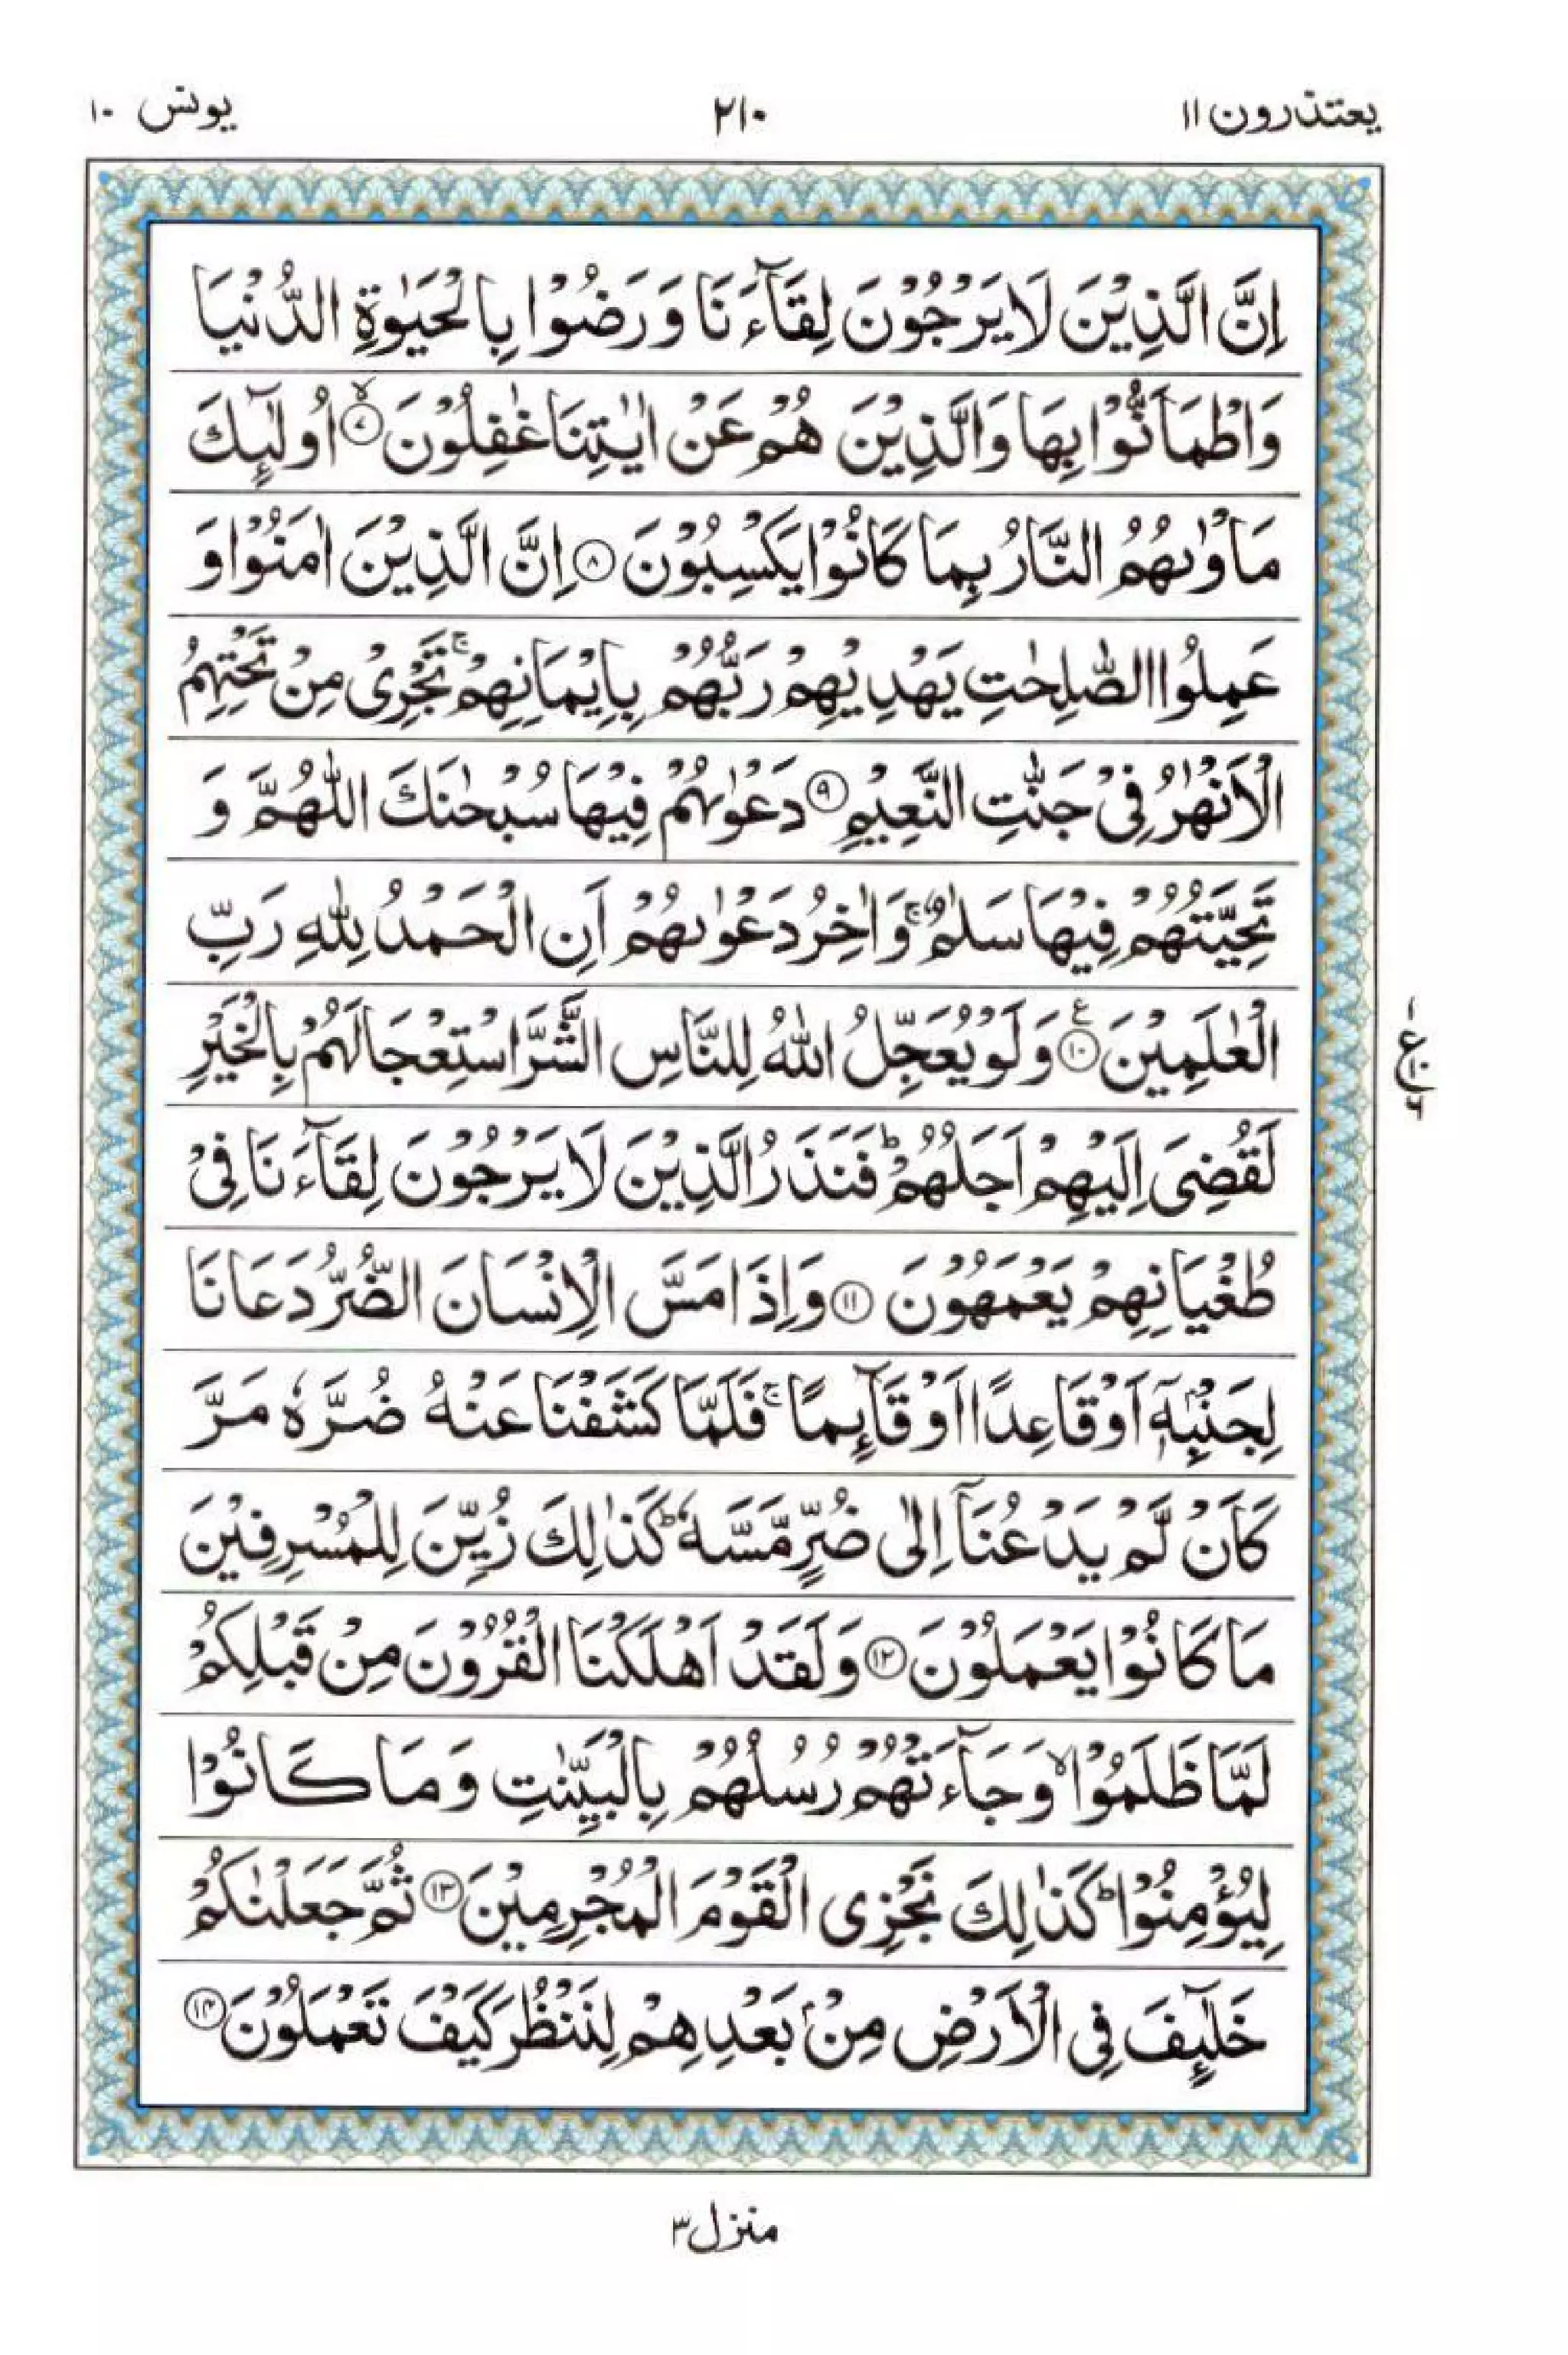 یعتذرون ۱۱
۲۱۰
یونس ۱۰
اِنَّ الَّذِيْنَ لَا يَرْجُوْنَ لِقَآءَنَا وَرَضُوْا بِالْحَيٰوةِ الدُّنْيَا
وَاطْمَاَنُّوْا بِهَا وَالَّذِيْنَ هُمْ عَنْ اٰيٰتِنَا غٰفِلُوْنَ ۙ‏﴿۷﴾ اُولٰٓئِكَ
مَاْوٰىهُمُ النَّارُ بِمَا كَانُوْا يَكْسِبُوْنَ ﴿۸﴾ اِنَّ الَّذِيْنَ اٰمَنُوْا وَ
عَمِلُوا الصّٰلِحٰتِ يَهْدِيْهِمْ رَبُّهُمْ بِاِيْمَانِهِمْ ۚ تَجْرِىْ مِنْ تَحْتِهِمُ
الْاَنْهٰرُ فِىْ جَنّٰتِ النَّعِيْمِ ﴿۹﴾ دَعْوٰىهُمْ فِيْهَا سُبْحٰنَكَ اللّٰهُمَّ وَ
تَحِيَّتُهُمْ فِيْهَا سَلٰمٌ ۚ وَاٰخِرُ دَعْوٰىهُمْ اَنِ الْحَمْدُ لِلّٰهِ رَبِّ
الْعٰلَمِيْنَ ﴿۱۰﴾ ع وَلَوْ يُعَجِّلُ اللّٰهُ لِلنَّاسِ الشَّرَّ اسْتِعْجَالَهُمْ بِالْخَيْرِ
لَقُضِىَ اِلَيْهِمْ اَجَلُهُمْ ؕ فَنَذَرُ الَّذِيْنَ لَا يَرْجُوْنَ لِقَآءَنَا فِىْ
طُغْيَانِهِمْ يَعْمَهُوْنَ ﴿۱۱﴾ وَاِذَا مَسَّ الْاِنْسَانَ الضُّرُّ دَعَانَا
لِجَنْۢبِهٖۤ اَوْ قَاعِدًا اَوْ قَآئِمًا ۚ فَلَمَّا كَشَفْنَا عَنْهُ ضُرَّهٗ مَرَّ
كَاَنْ لَّمْ يَدْعُنَاۤ اِلٰى ضُرٍّ مَّسَّهٗ ؕ كَذٰلِكَ زُيِّنَ لِلْمُسْرِفِيْنَ
مَا كَانُوْا يَعْمَلُوْنَ ﴿۱۲﴾ وَلَقَدْ اَهْلَكْنَا الْقُرُوْنَ مِنْ قَبْلِكُمْ
لَمَّا ظَلَمُوْا ۙ وَجَآءَتْهُمْ رُسُلُهُمْ بِالْبَيِّنٰتِ وَمَا كَانُوْا
لِيُؤْمِنُوْا ؕ كَذٰلِكَ نَجْزِى الْقَوْمَ الْمُجْرِمِيْنَ ﴿۱۳﴾ ثُمَّ جَعَلْنٰكُمْ
خَلٰٓئِفَ فِى الْاَرْضِ مِنْۢ بَعْدِهِمْ لِنَنْظُرَ كَيْفَ تَعْمَلُوْنَ ﴿۱۴﴾
منزل ۳